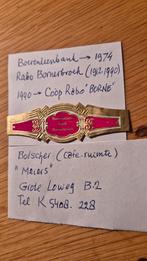 Boerenleenbank → 1974
Rabo Bornerbroek (1912-1990)
1990 → Coöp Rabo "BORNE"
Bolscher (Cafe-ruimte)
"Meiers"
Grote Loweg B.2
Tel K 5408. 228